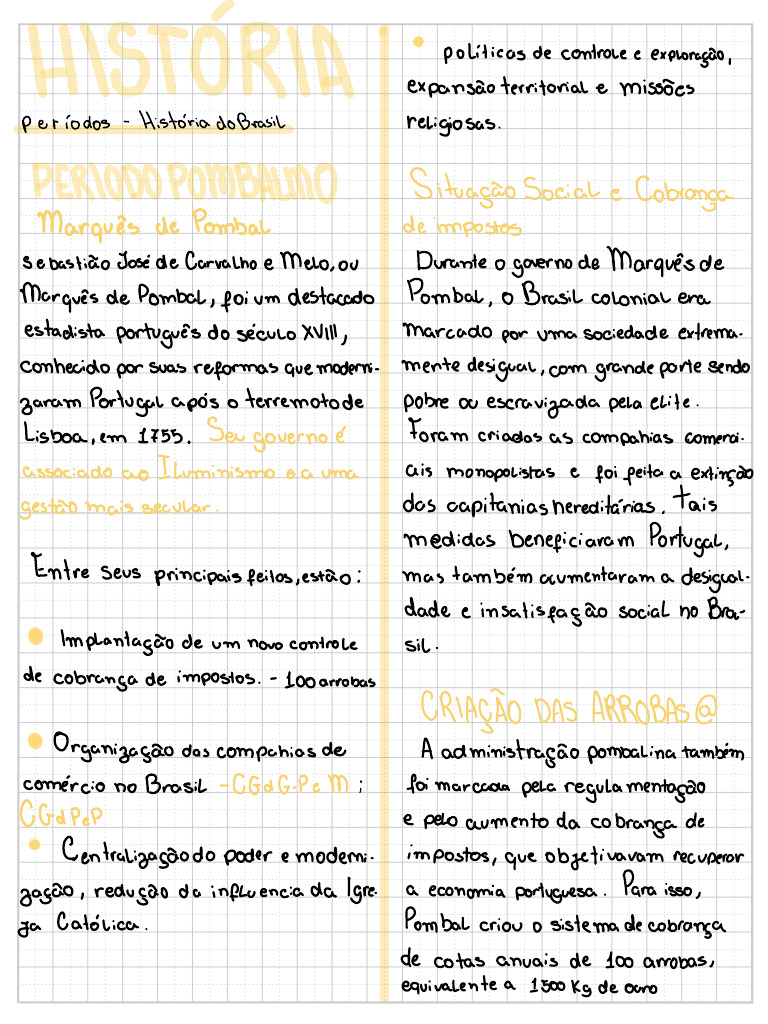 HISTÓRIA
Períodos - História do Brasil
PERÍODO POMBALINO
Marquês de Pombal
Sebastião José de Carvalho e Melo, ou
Marquês de Pombal, foi um destacado
estadista português do século XVIII,
conhecido por suas reformas que moderni-
zaram Portugal após o terremoto de
Lisboa, em 1755. Seu governo é
associado ao Iluminismo e a uma
gestão mais secular.
Entre seus principais feitos, estão:
Implantação de um novo controle
de cobrança de impostos. - 100 arrobas
Organização das companhias de
comércio no Brasil - CGdG.P e M ;
CGdPeP
Centralização do poder e moderni-
zação, redução da influencia da Igre-
ja Católica.
políticas de controle e exploração,
expansão territorial e missões
religiosas.
Situação Social e Cobrança
de impostos
Durante o governo de Marquês de
Pombal, o Brasil colonial era
marcado por uma sociedade extrema-
mente desigual, com grande parte sendo
pobre ou escravizada pela elite.
Foram criadas as compahias comerci-
ais monopolistas e foi feita a extinção
das capitanias hereditárias. Tais
medidas beneficiaram Portugal,
mas também aumentaram a desigual-
dade e insatisfação social no Bra-
sil.
CRIAÇÃO DAS ARROBAS @
A administração pombalina também
foi marcada pela regulamentação
e pelo aumento da cobrança de
impostos, que objetivavam recuperar
a economia portuguesa. Para isso,
Pombal criou o sistema de cobrança
de cotas anuais de 100 arrobas,
equivalente a 1500 Kg de ouro